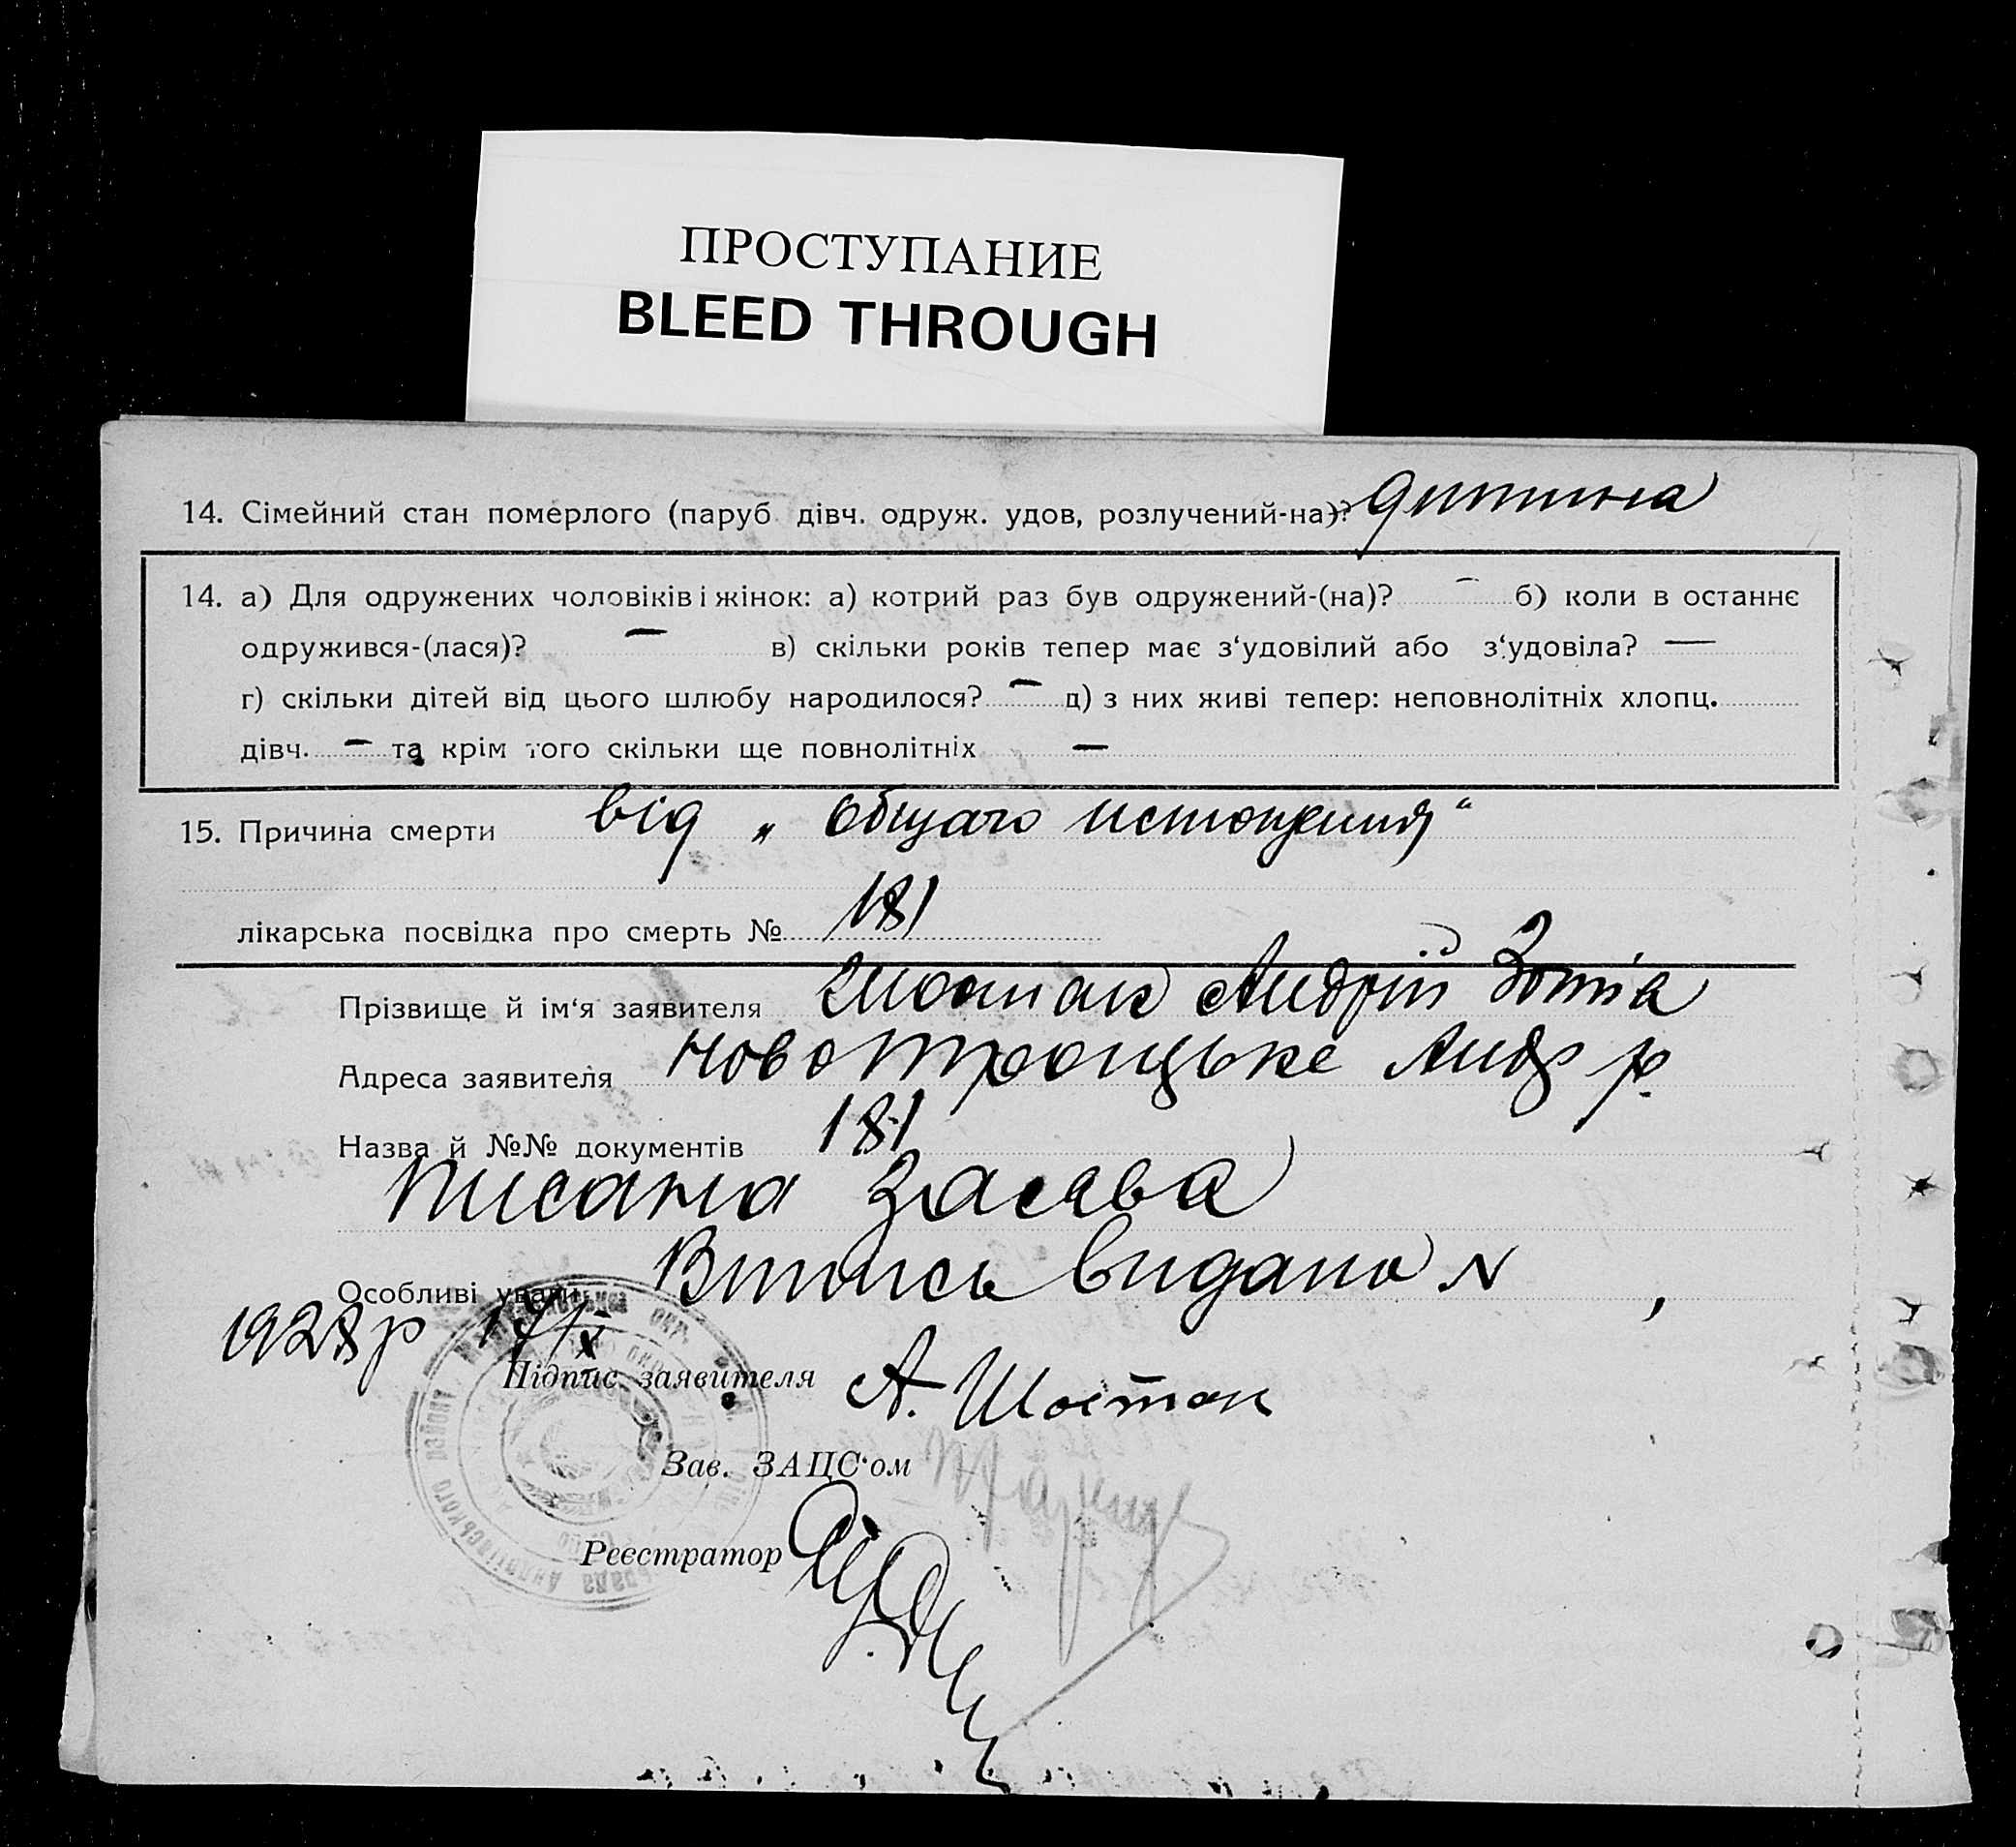 ПРОСТУПАНИЕ
BLEED THROUGH
14. Сімейний стан померлого (паруб. дівч. одруж. удов, розлучений-на)? дитина
14. а) Для одружених чоловіків і жінок: а) котрий раз був одружений-(на)? — б) коли в останнє
одружився-(лася)? — в) скільки років тепер має з‘удовілий або з‘удовіла? —
г) скільки дітей від цього шлюбу народилося? — д) з них живі тепер: неповнолітніх хлопц.
дівч. — та крім того скільки ще повнолітніх —
15. Причина смерти від „общаго истощения“
лікарська посвідка про смерть № 181
Прізвище й ім‘я заявителя Шостак Андрій
Адреса заявителя Новотроицьке Андр р.
Назва й №№ документів 181
писана заєява
Особливі уваги Витпись видано N ,
1928 р
Підпис заявителя А. Шостак
Зав. ЗАЦС‘ом
Реєстратор